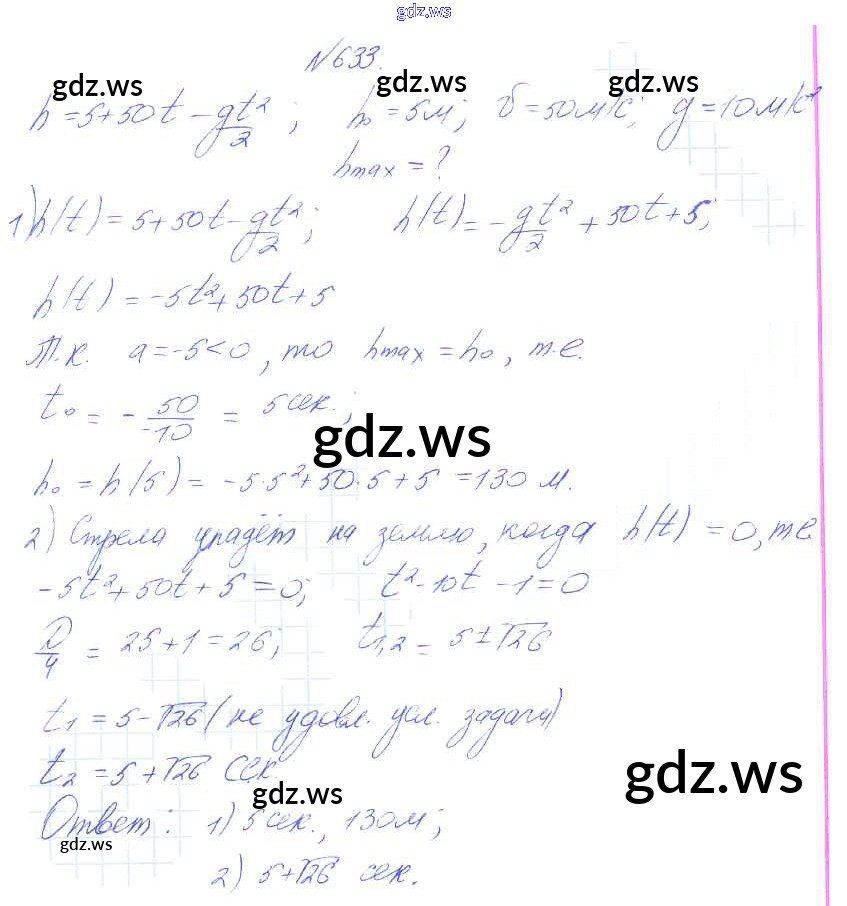 gdz.ws
№633.
gdz.ws gdz.ws gdz.ws
h = 5+50t - gt²/2 ; h₀ = 5м; υ = 50м/с; g = 10м/с²
hmax = ?
1) h(t) = 5+50t - gt²/2; h(t) = - gt²/2 + 50t+5;
h(t) = -5t²+50t+5
Т.к. a = -5 < 0, то hmax = h₀, т.е.
t₀ = - 50/-10 = 5 сек.;
gdz.ws
h₀ = h(5) = -5·5²+50·5+5 = 130 м.
2) Стрела упадёт на землю, когда h(t) = 0, т.е
-5t²+50t+5 = 0; t²-10t-1=0
D/4 = 25+1=26; t1,2 = 5±√26
t₁ = 5-√26 (не удовл. усл. задачи)
t₂ = 5+√26 сек
gdz.ws
gdz.ws
Ответ: 1) 5 сек., 130 м;
gdz.ws
2) 5+√26 сек.